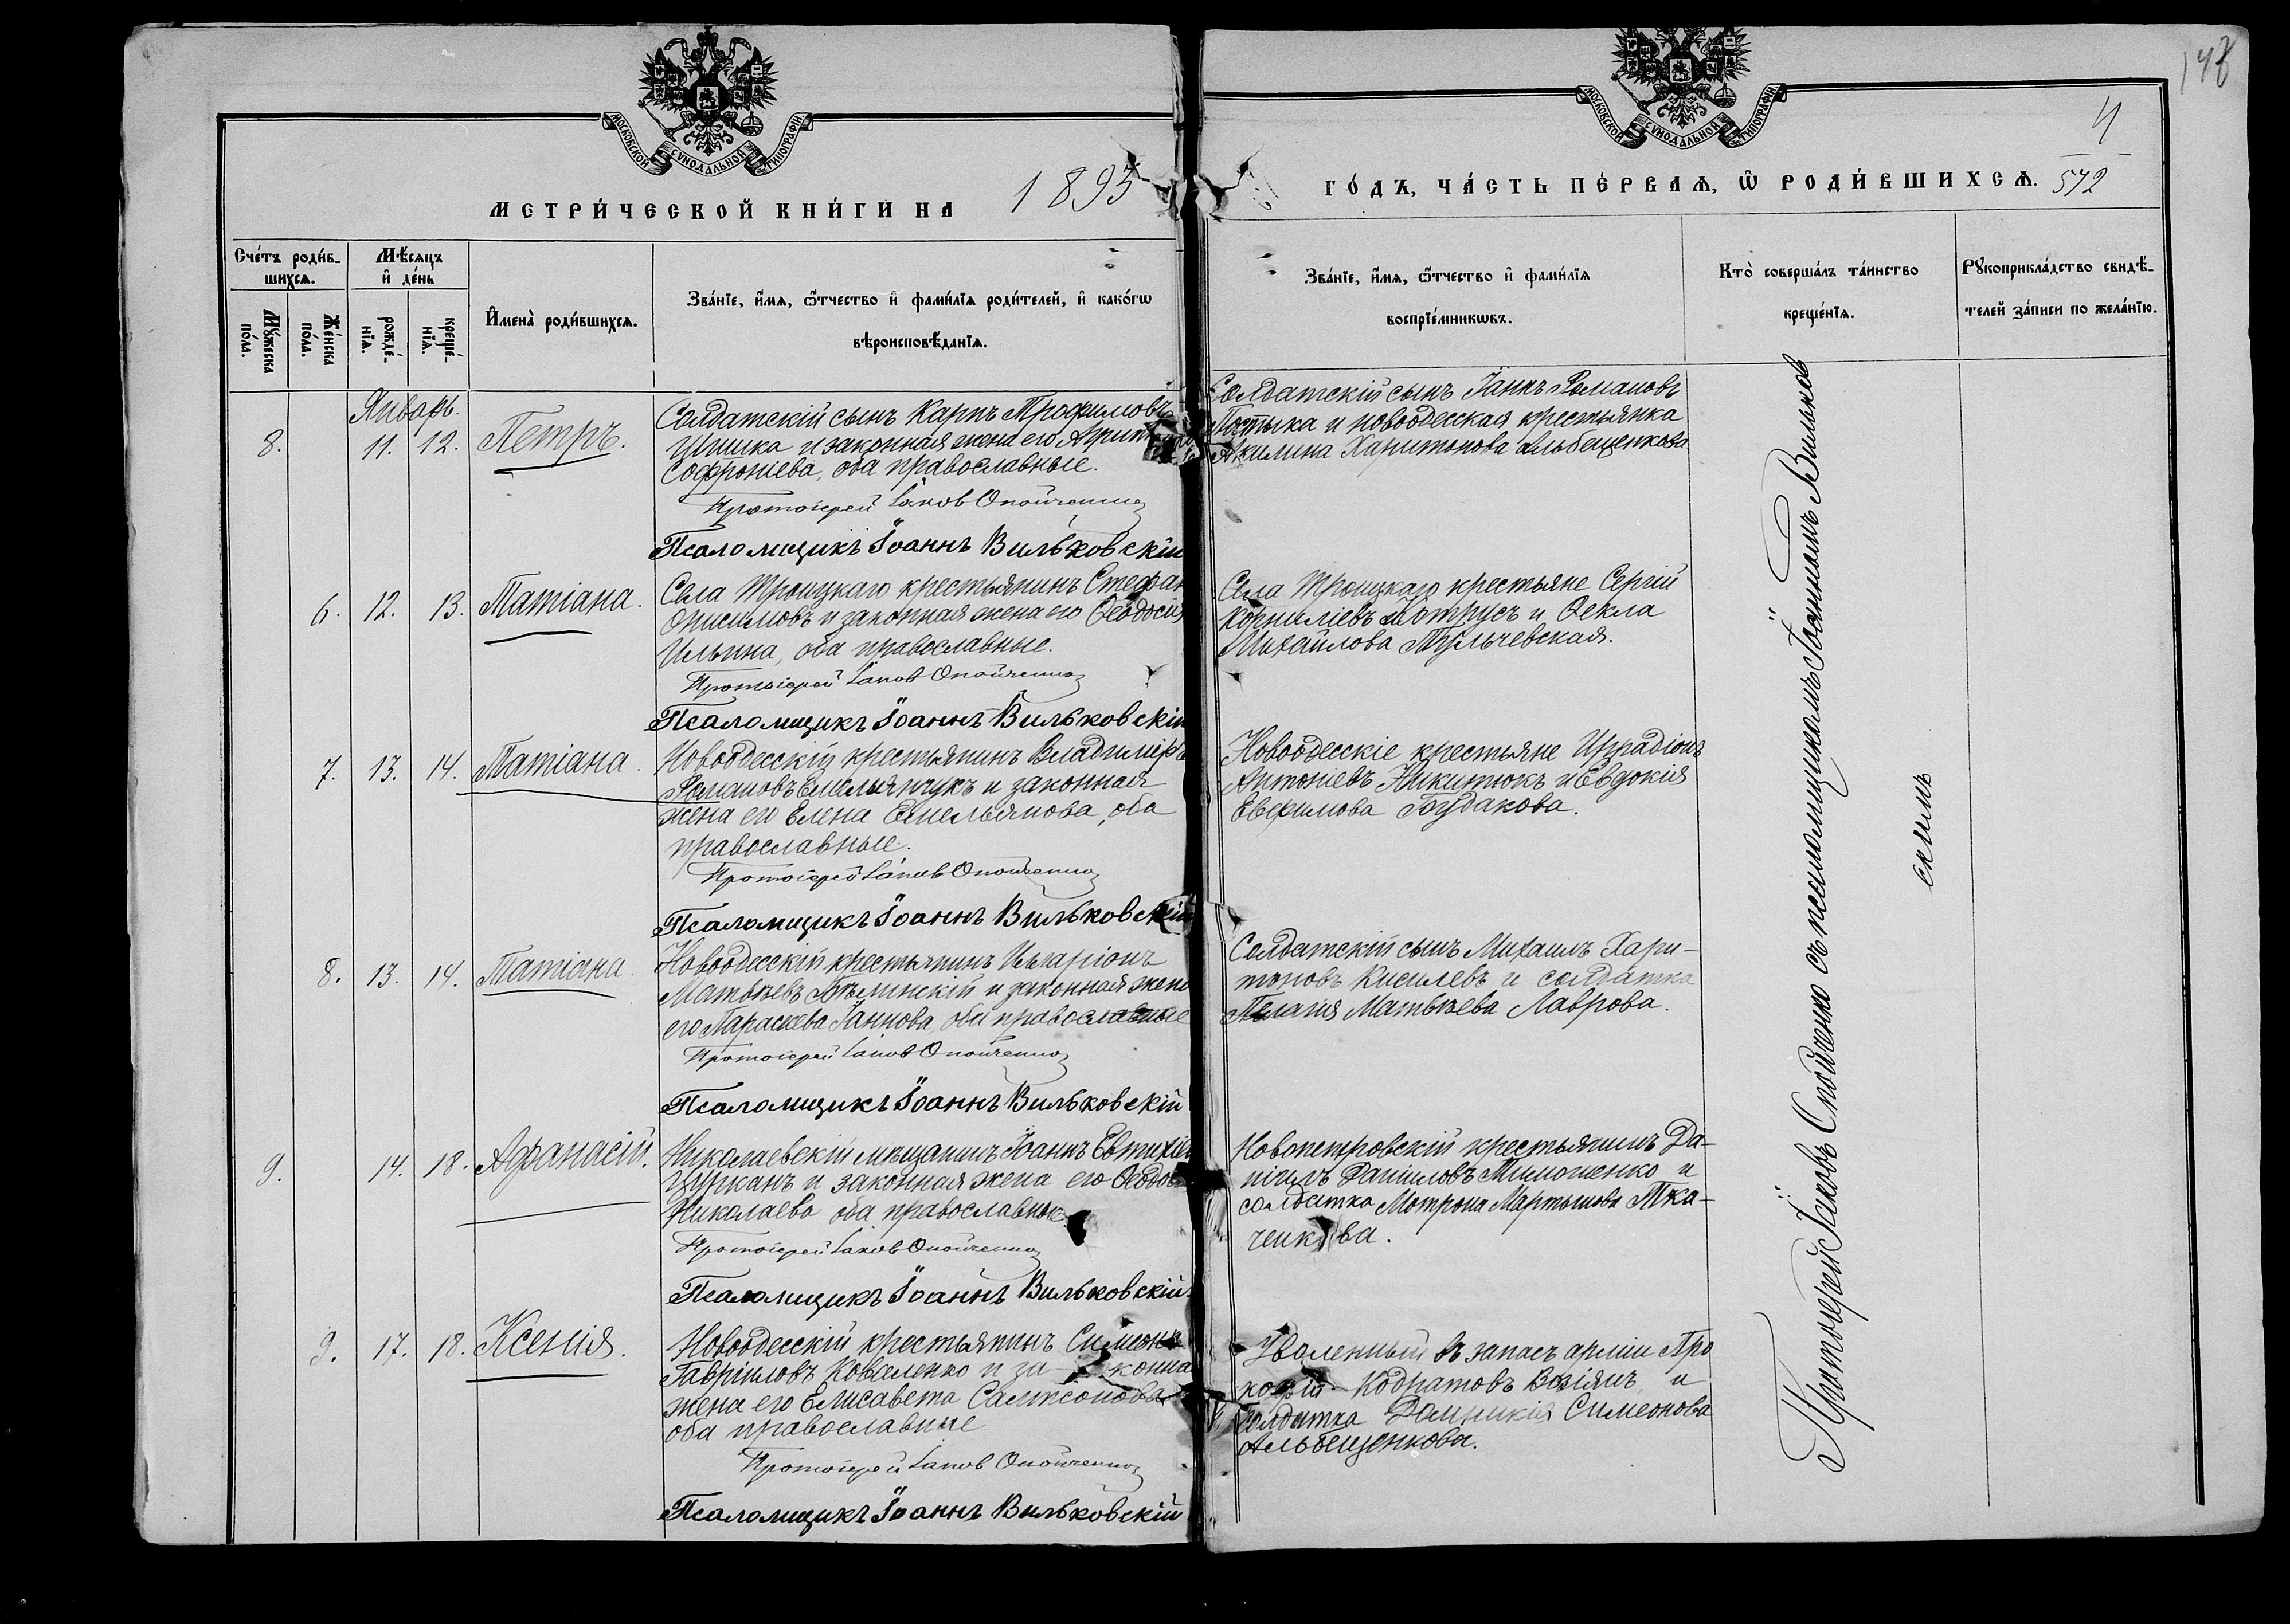 148
4
572
МОСКОВСКОЙ СѴНОДАЛЬНОЙ ТИПОГРАФІИ
МОСКОВСКОЙ СѴНОДАЛЬНОЙ ТИПОГРАФІИ
МЕТРИ́ЧЕСКОЙ КНИ́ГИ НА 1895
ГО́ДЪ, ЧА́СТЬ ПЕ́РВАѦ, Ѡ҆ РОДИ́ВШИХСѦ.
Сче́тъ роди́в-
шихсѧ.
Мꙋ́жеска по́ла.
Же́нска по́ла.
Мѣ́сѧцъ
и҆ де́нь
рожде́-
нїѧ.
креще́-
нїѧ.
И҆мена̀ роди́вшихсѧ.
Зва́нїе, и҆́мѧ, ѻ҆́тчество и҆ фами́лїѧ роди́телей, и҆ како́гѡ
вѣроисповѣ́данїѧ.
Зва́нїе, и҆́мѧ, ѻ҆́тчество и҆ фами́лїѧ
воспрїе́мникѡвъ.
Кто̀ соверша́лъ та́инство
креще́нїѧ.
Рꙋкоприкла́дство свидѣ́-
телей за́писи по жела́нїю.
Январь.
8. 11. 12. Петръ.
Солдатскій сынъ Карпъ Трофимовъ
Шишка и законная жена его
Софроніева, оба православные.
Протоіерей Іаковъ Опойченко
Псаломщикъ Іоаннъ Вильковскій
Солдатскій сынъ Романовъ
и новоодесская крестьянка
Акилина Харитонова Альбещенкова
6. 12. 13. Татіана.
Села Троицкаго крестьянинъ Стефан
Онисимовъ и законная жена его Ѳеодосія
Ильина, оба православные.
Протоіерей Іаковъ Опойченко
Псаломщикъ Іоаннъ Вильковскій
Села Троицкаго крестьяне Сергій
Корниліевъ и Ѳекла
Михайлова Тульчевская.
7. 13. 14. Татіана.
Новоодесскій крестьянинъ Владиміръ
Романовъ Емельянчукъ и законная
жена его Елена Емельянова, оба
православные.
Протоіерей Іаковъ Опойченко
Псаломщикъ Іоаннъ Вильковскій
Новоодесскіе крестьяне Иродіонъ
Антоніевъ Никитюкъ и Евдокія
Евфимова Будакова.
8. 13. 14. Татіана
Новоодесскій крестьянинъ Иларіонъ
Матвѣевъ и законная жена
его Параскева Іаннова, оба православные
Протоіерей Іаковъ Опойченко
Псаломщикъ Іоаннъ Вильковскій
Солдатскій сынъ Михаилъ Хари-
тоновъ Киселевъ и солдатка
Пелагія Матвѣева Лаврова.
9. 14. 18. Афанасій.
Николаевскій мѣщанинъ Іоаннъ Евтихіев
Цурканъ и законная жена его Ѳеодос
Николаева оба православные.
Протоіерей Іаковъ Опойченко
Псаломщикъ Іоаннъ Вильковскій
Новопетровскій крестьянинъ Да-
ніилъ Даниловъ Тимошенко и
солдатка Мотрона Мартынова Тка-
ченкова.
9. 17. 18. Ксенія.
Новоодесскій крестьянинъ Симеонъ
Гавріиловъ Коваленко и законна
жена его Елисавета Сампсонова
оба православные
Протоіерей Іаковъ Опойченко
Псаломщикъ Іоаннъ Вильковскій
Уволенный въ запасъ арміи Про
кофій Кодратовъ Возіянъ и
солдатка Домникія Симеонова
Альбещенкова.
Протоіерей Іаковъ Опойченко съ псаломщикомъ Іоанномъ Вильков
скимъ